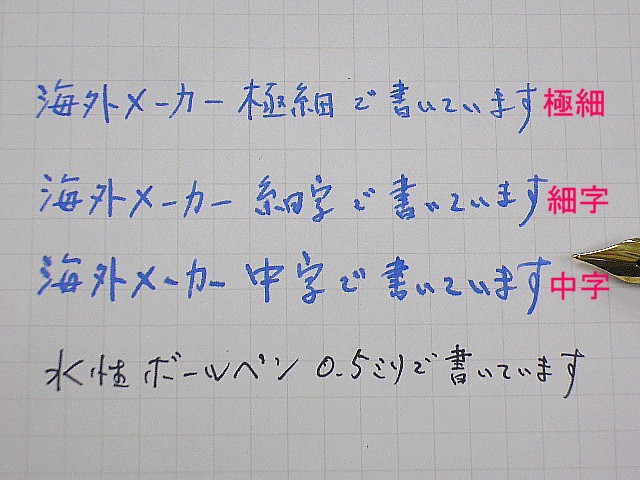 海外メーカー 極細で書いています 極細
海外メーカー 細字で書いています 細字
海外メーカー 中字で書いています 中字
水性ボールペン 0.5ミリで書いています